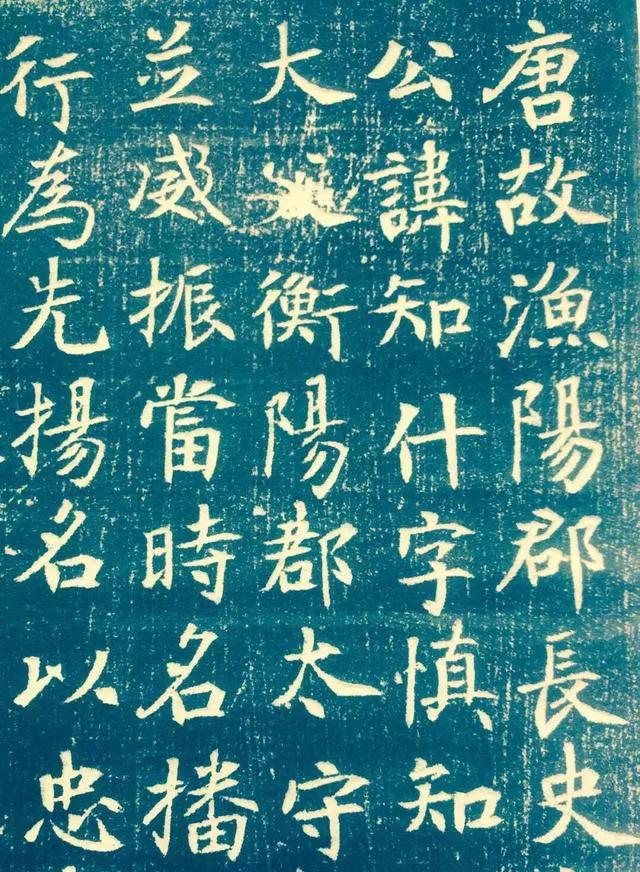 唐故漁陽郡長史
公諱知什字慎知
大父衡陽郡太守
並威振當時名播
行為先揚名以忠